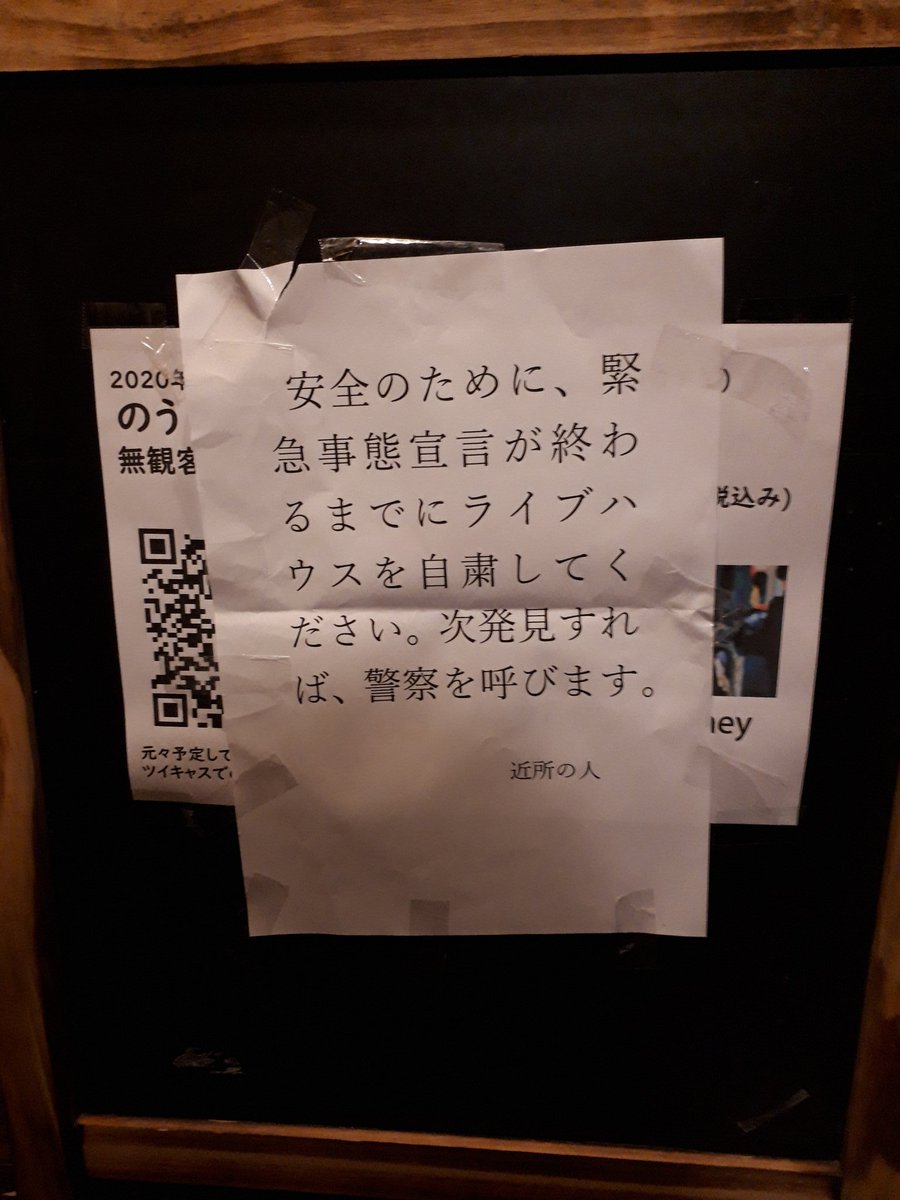 安全のために、緊
急事態宣言が終わ
るまでにライブハ
ウスを自粛してく
ださい。次発見すれ
ば、警察を呼びます。
近所の人
2020年
のう
無観客
元々予定して
ツイキャスで
)
税込み)
ney